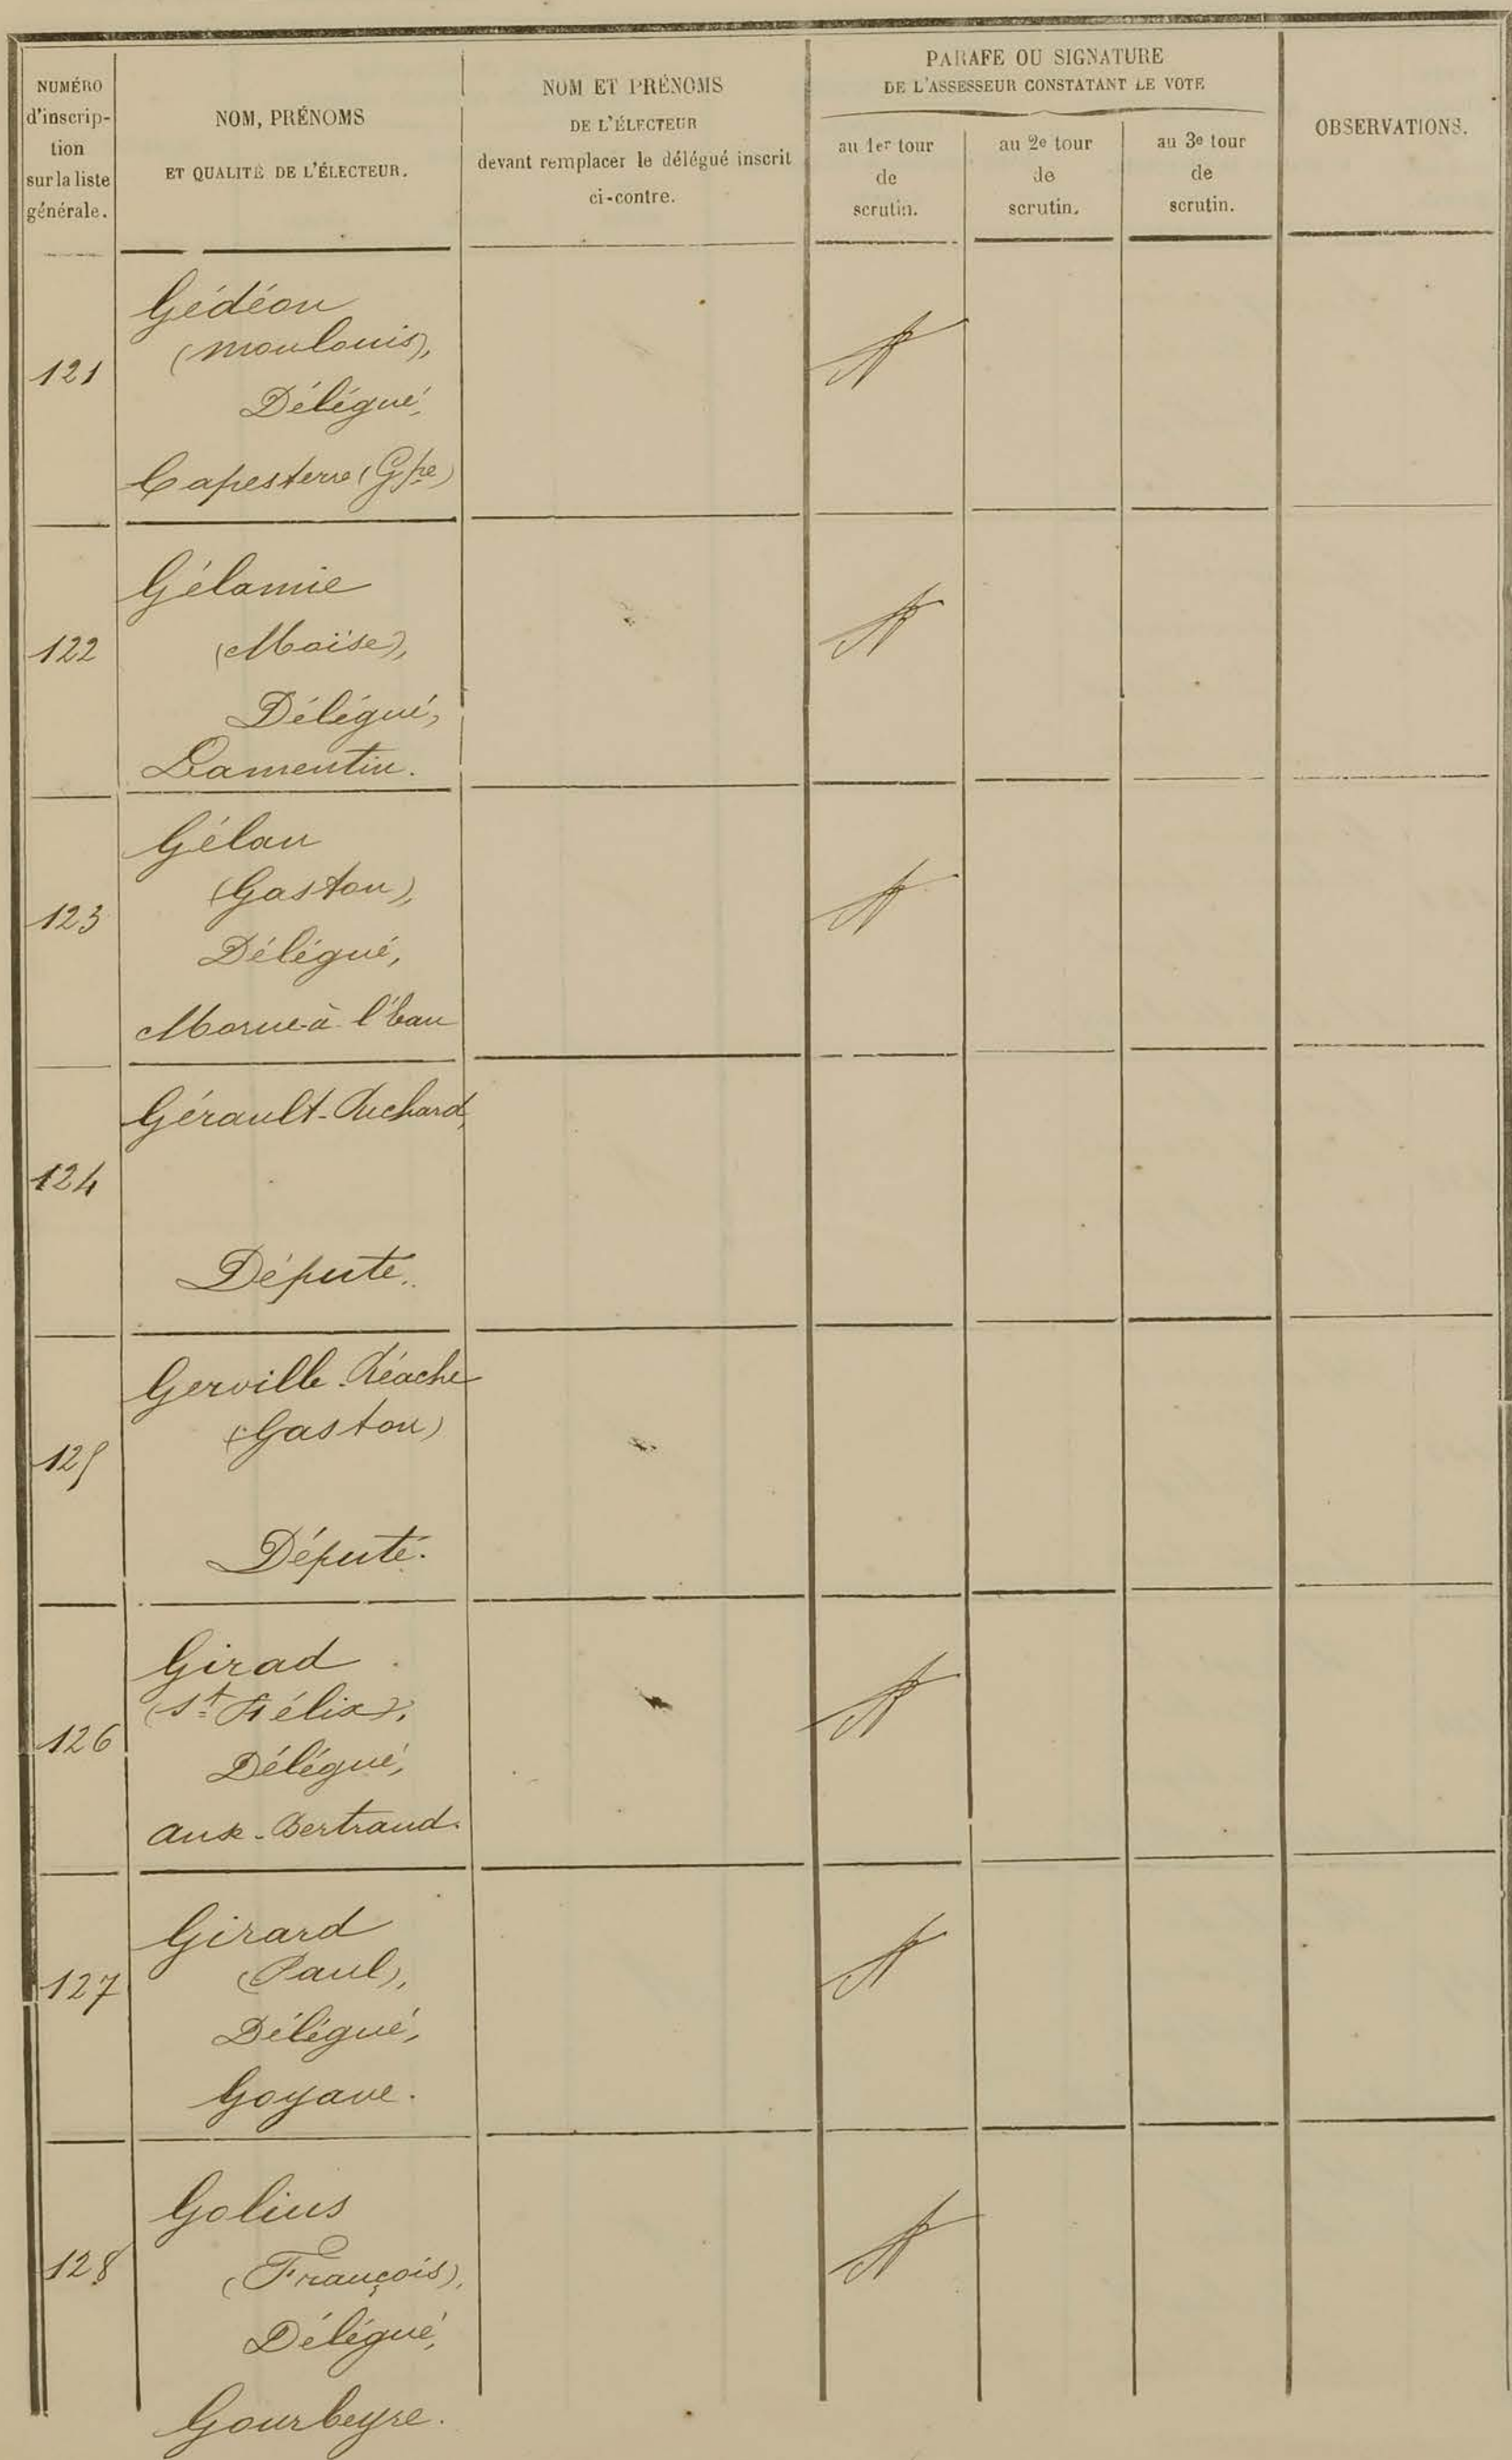 NUMÉRO
d'inscrip-
tion
sur la liste
générale.
NOM, PRÉNOMS
ET QUALITÉ DE L'ÉLECTEUR.
NOM ET PRÉNOMS
DE L'ÉLECTEUR
devant remplacer le délégué inscrit
ci-contre.
PARAFE OU SIGNATURE
DE L'ASSESSEUR CONSTATANT LE VOTE
au 1er tour
de
scrutin.
au 2e tour
de
scrutin.
au 3e tour
de
scrutin.
OBSERVATIONS.
121
Gédéon
(Moulouis),
Délégué,
Capesterre (Gpe)
122
Gélamie
(Moïse),
Délégué,
Lamentin.
123
Gélan
(Gaston),
Délégué,
Morne-à-l'Eau
124
Gérault-Richard,
Député.
125
Gerville-Réache
(Gaston)
Député.
126
Girad
(St Félix),
Délégué,
Anse-Bertrand.
127
Girard
(Paul),
Délégué,
Goyave.
128
Golius
(François),
Délégué,
Gourbeyre.